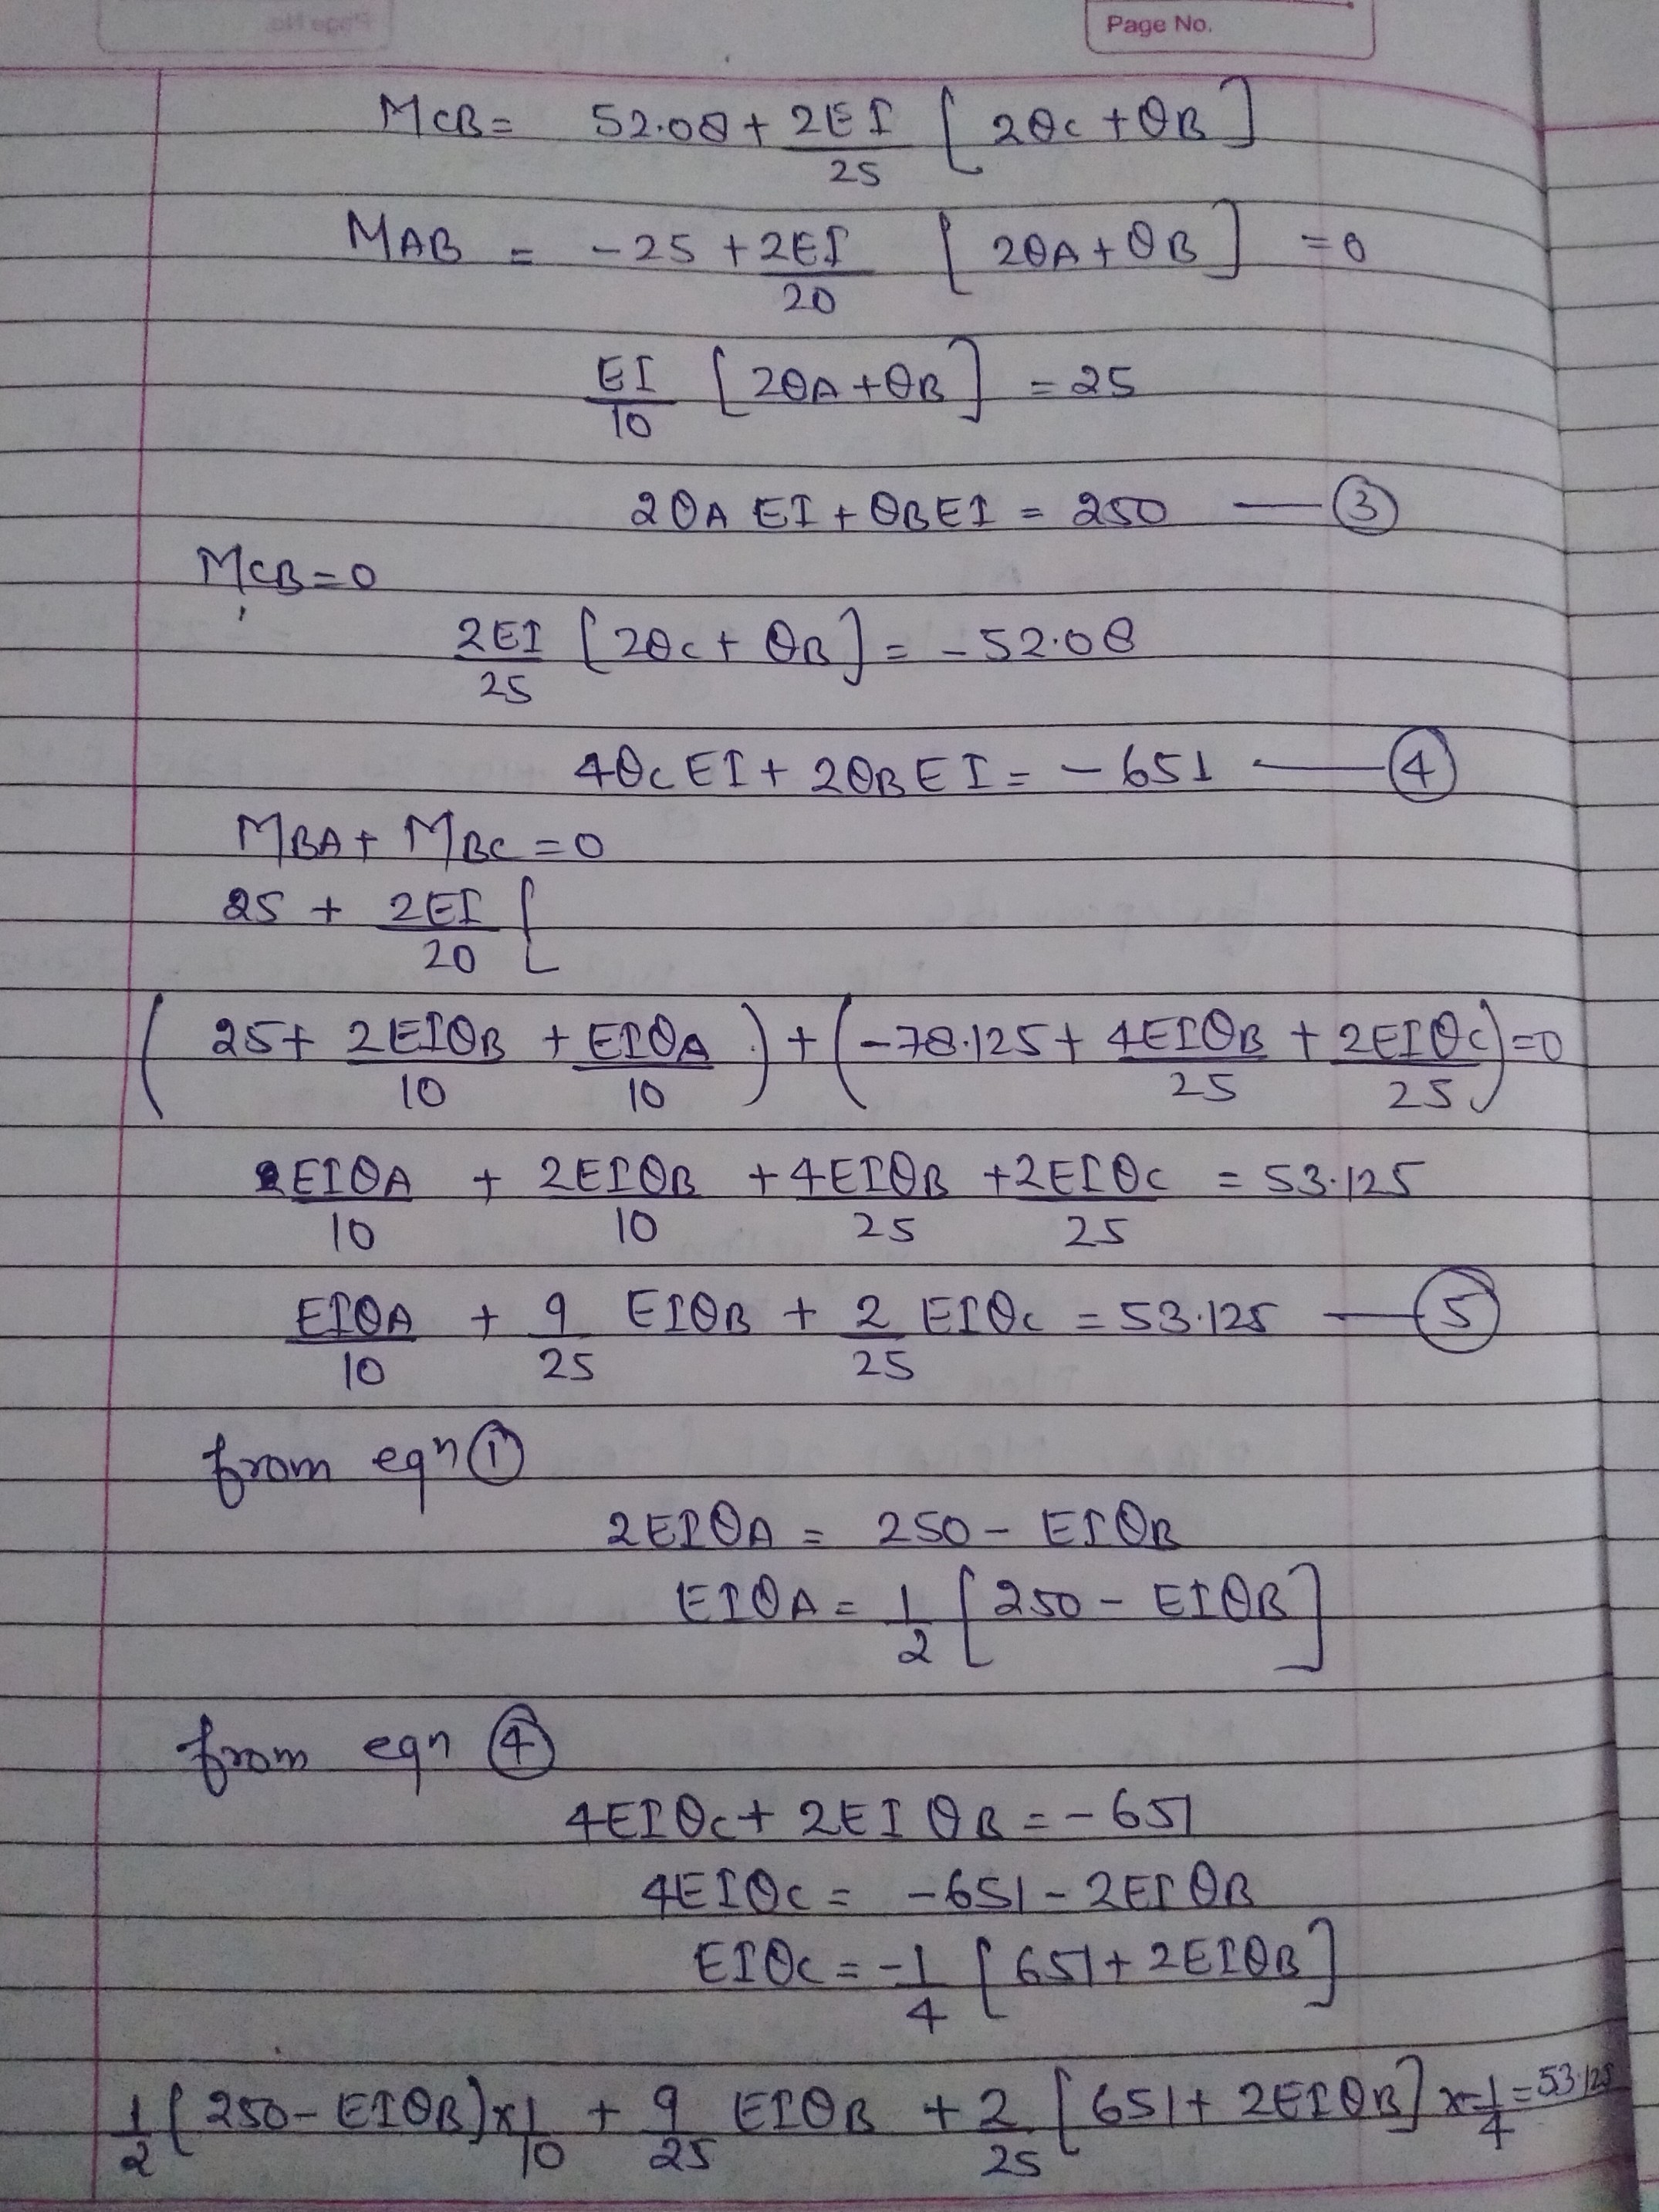 Page No.
MCB = 52.08 + 2EI/25 [2θC + θB]
MAB = -25 + 2EI/20 [2θA + θB] = 0
EI/10 [2θA + θB] = 25
2θA EI + θB EI = 250 — ③
MCB = 0
2EI/25 [2θC + θB] = -52.08
4θC EI + 2θB EI = -651 — ④
MBA + MBC = 0
25 + 2EI/20 [
(25 + 2EIθB/10 + EIθA/10) + (-78.125 + 4EIθB/25 + 2EIθC/25) = 0
EIθA/10 + 2EIθB/10 + 4EIθB/25 + 2EIθC/25 = 53.125
EIθA/10 + 9/25 EIθB + 2/25 EIθC = 53.125 — ⑤
from eqn ①
2EIθA = 250 - EIθB
EIθA = 1/2 [250 - EIθB]
from eqn ④
4EIθC + 2EIθB = -651
4EIθC = -651 - 2EIθB
EIθC = -1/4 [651 + 2EIθB]
1/2 (250 - EIθB) × 1/10 + 9/25 EIθB + 2/25 [651 + 2EIθB] × -1/4 = 53.125